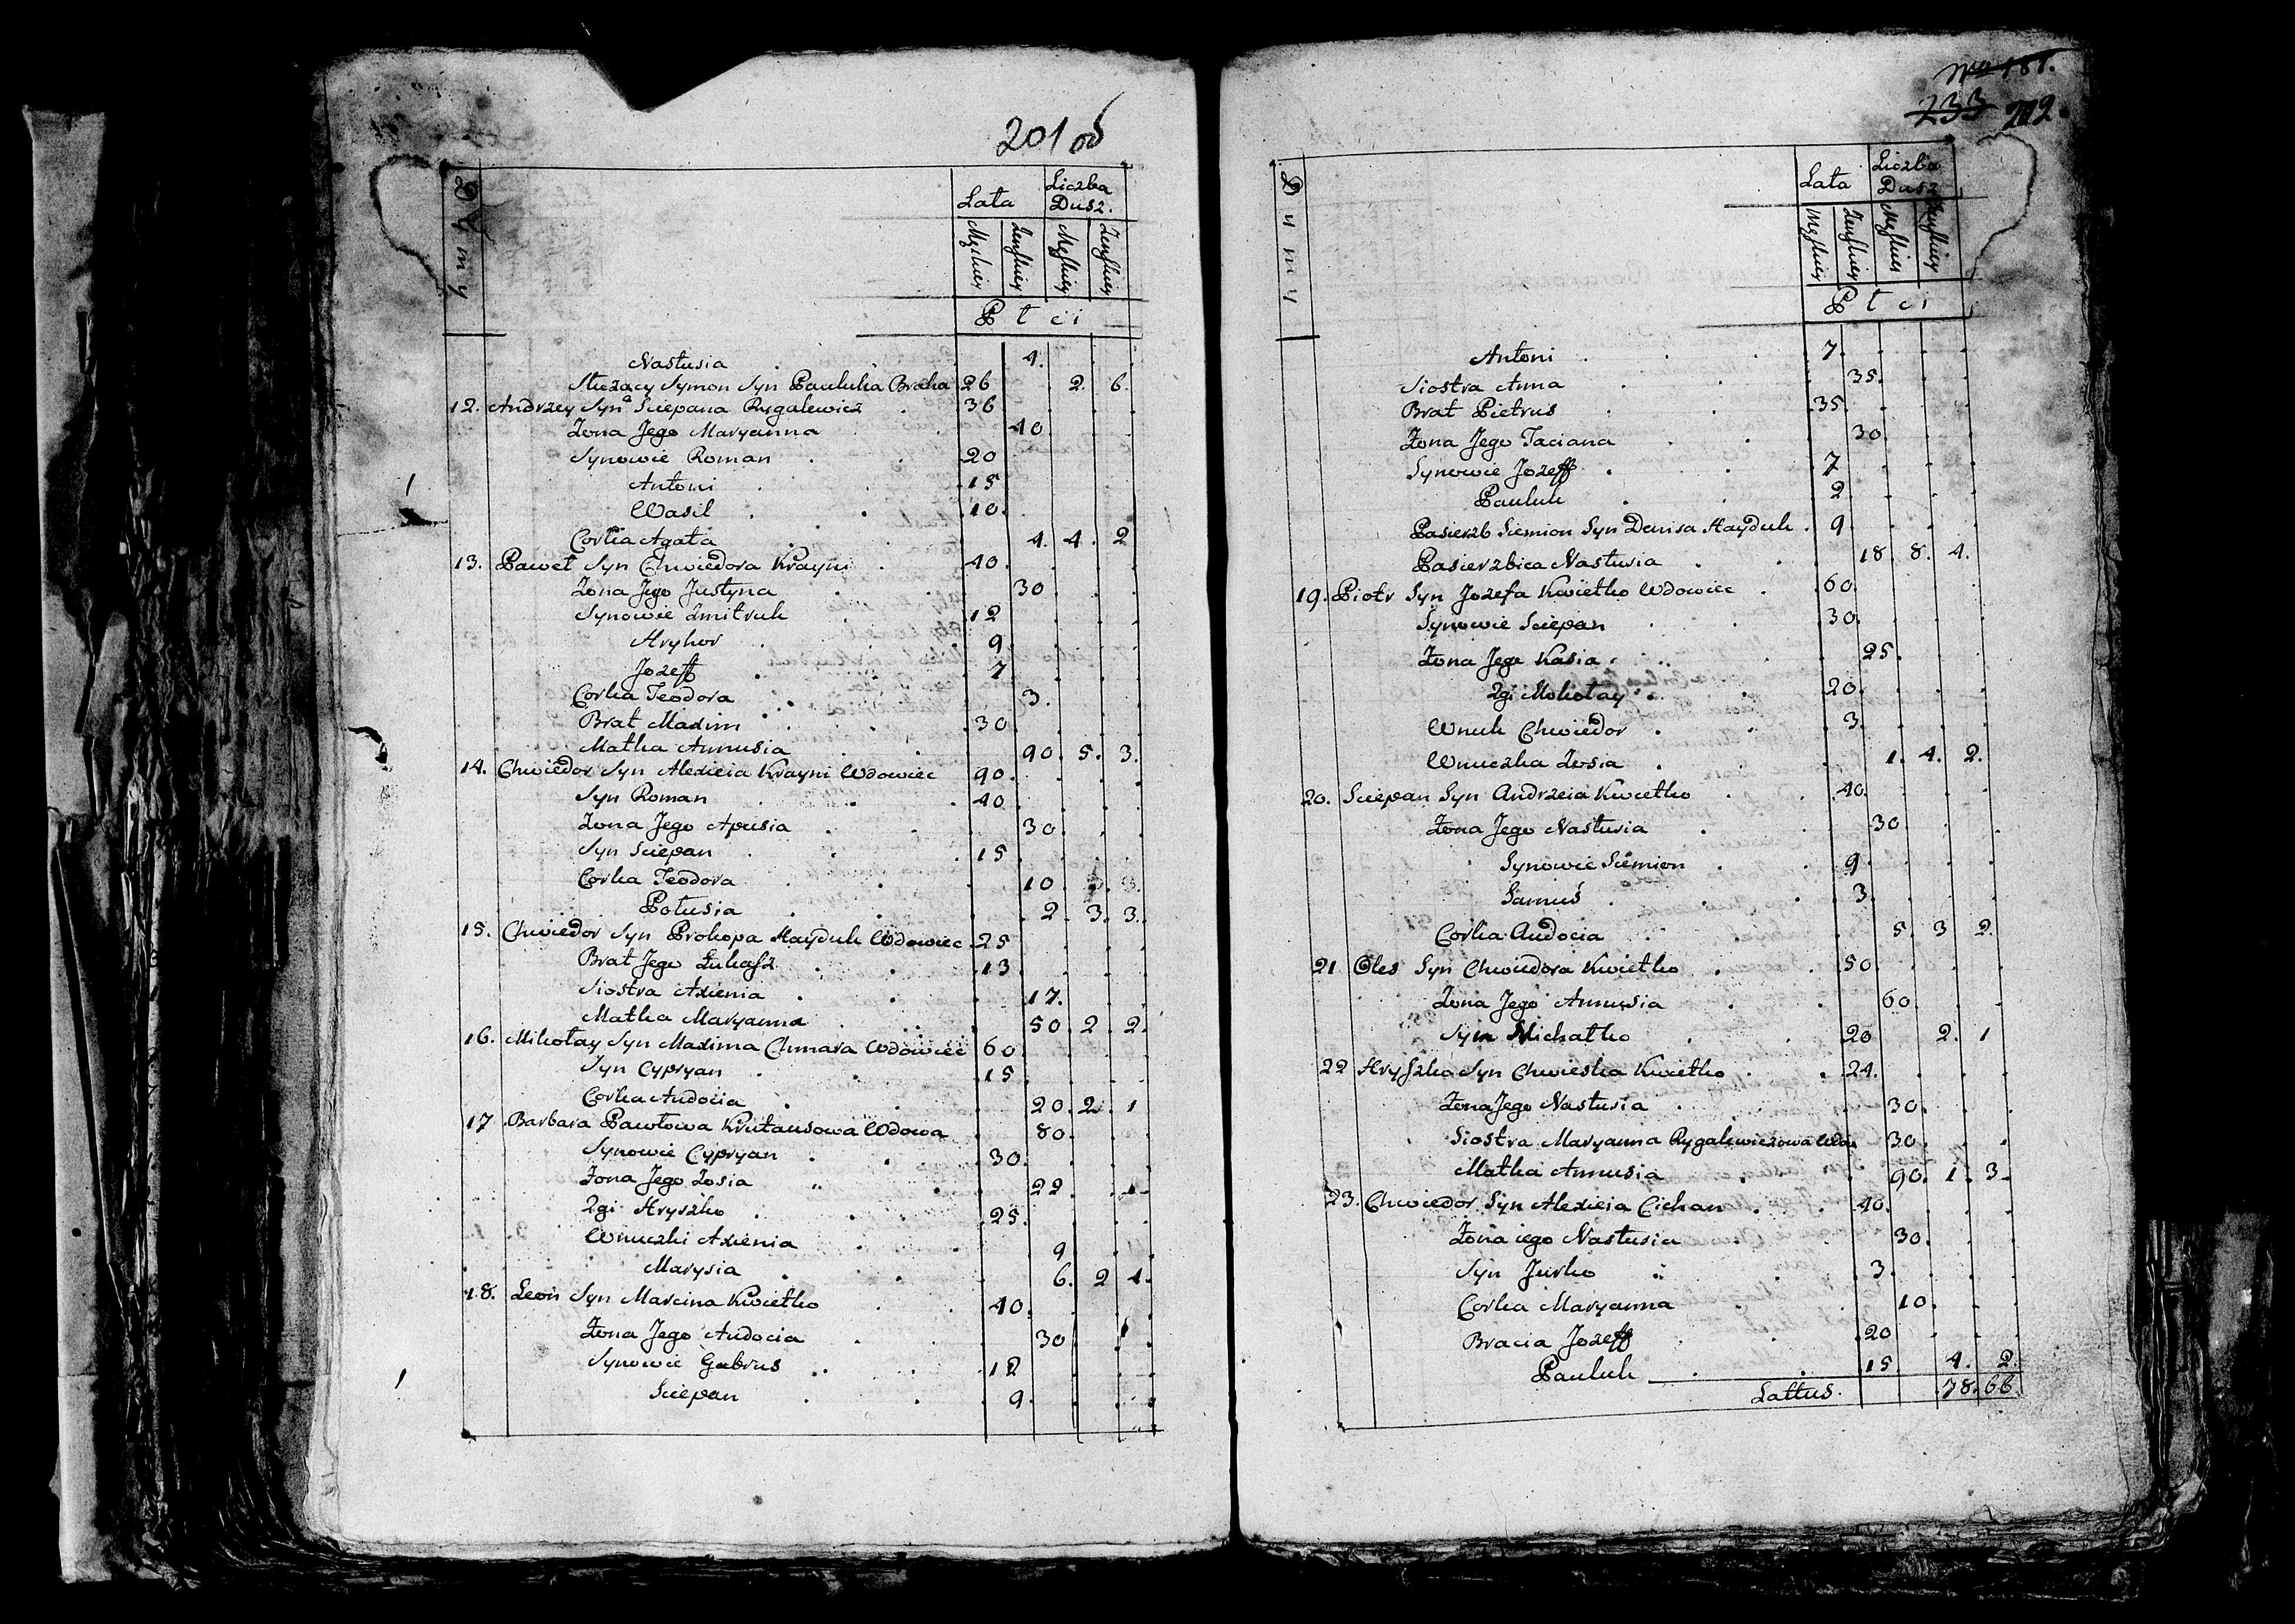 201 об
Dymy
Lata Liczba Dusz.
Męskiey Żenskiey Męskiey Żenskiey
Płci
Nastusia . 4.
Służący Symon Syn Pauluka Braha 26 2. 6.
12. Andrzey Syn Sciepana Rygalewicz . 36
Żona Jego Maryanna 40
Synowie Roman . 20
Antoni . 15
Wasil . 10.
Corka Agata 4. 4. 2
13. Paweł Syn Chwiedora Krayni . 40.
Żona Jego Justyna 30
Synowie Dmitruk 12
Hryhor . 9.
Jozeff . 7
Corka Teodora 3.
Brat Maxim . 30
Matka Annusia 90. 5. 3.
14. Chwiedor Syn Alexieia Krayni Wdowiec 90.
Syn Roman . 40
Żona Jego Apusia . 30.
Syn Sciepan . 15
Corka Teodora . 10
Połusia . 2. 3. 3.
15. Chwiedor Syn Prokopa Hayduk Wdowiec 25
Brat Jego Łukasz . 13.
Siostra Axienia . 17.
Matka Maryanna 50. 2. 2.
16. Mikołay Syn Maxima Chmara Wdowiec 60
Syn Cypryan . 15
Corka Audocia . 20. 2. 1
17 Barbara Pawłowa Krutausowa Wdowa 80.
Synowie Cypryan . 30.
Żona Jego Zosia 22.
2gi Hryszko . 25.
Wnuczki Axienia 9
Marysia . 6. 2 4.
18. Leon Syn Marcina Kwietko . 40.
Żona Jego Audocia . 30
Synowie Gabrus . 12
Sciepan . 9.
No 181.
233 202.
Dymy
Lata Liczba Dusz
Męskiey Żenskiey Męskiey Żenskiey
Płci
Antoni . 7.
Siostra Anna . 35.
Brat Pietrus . 35.
Żona Jego Taciana . 30.
Synowie Jozeff . 7
Pauluk . 2
Pasierzb Siemion Syn Denisa Hayduk . 9.
Pasierzbica Nastusia . 18. 8. 4.
19. Piotr Syn Jozefa Kwietko Wdowiec . 60.
Synowie Sciepan . 30.
Żona Jego Kasia . 25.
2gi Mikołay . 20.
Wnuk Chwiedor . 3.
Wnuczka Zosia . 1. 4. 2.
20. Sciepan Syn Andrzeia Kwietko . 40.
Żona Jego Nastusia . 30.
Synowie Siemion . 9.
Samuś . 3.
Corka Audocia . 5. 3 2.
21 Oles Syn Chwiedora Kwietko . 50.
Żona Jego Annusia . 60.
Syn Michałko . 20 2. 1
22 Hryszko Syn Chwieska Kwietko . 24.
Żona Jego Nastusia . 30.
Siostra Maryanna Rygalewiczowa Wdo: 30.
Matka Annusia . 90. 1. 3.
23. Chwiedor Syn Alexieia Cichan . 40.
Żona iego Nastusia . 30.
Syn Jurko . 3.
Corka Maryanna . 10.
Bracia Jozeff . 20
Pauluk . 15. 4. 2.
Lattus. 78. 66.